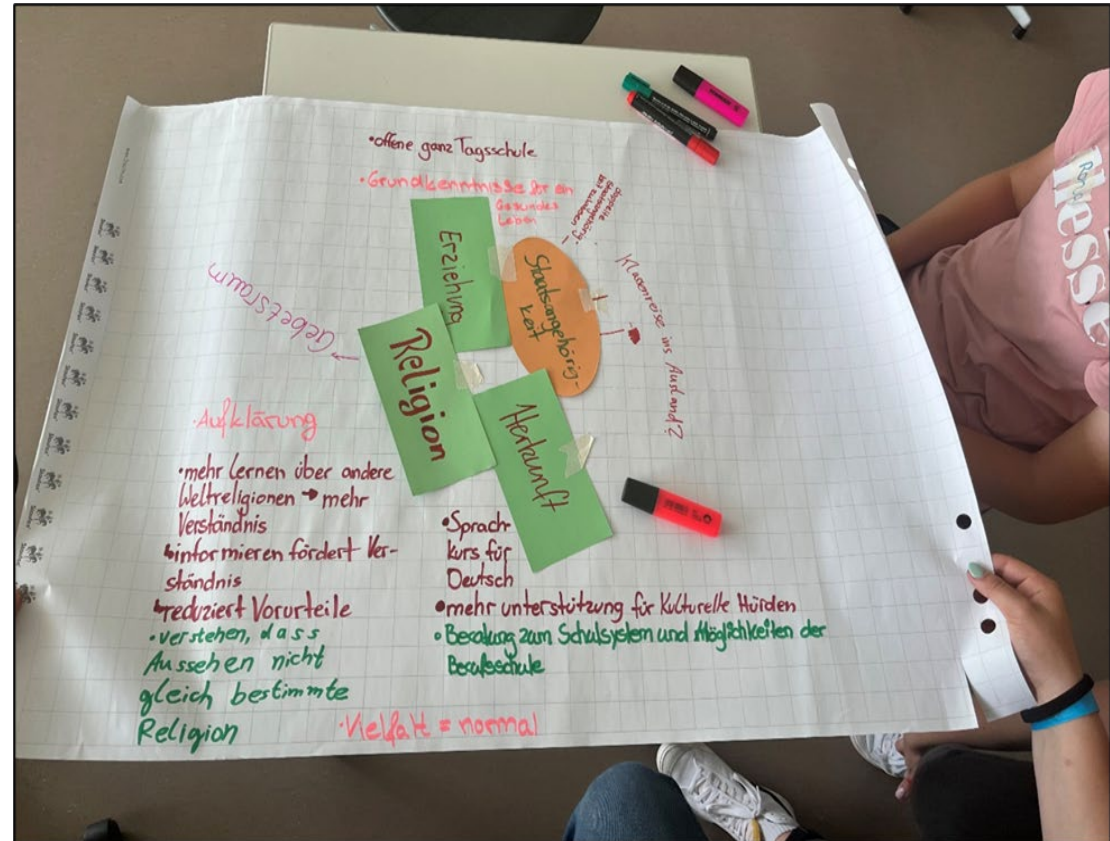 •offene ganz Tagsschule
•Grundkenntnisse für ein
Gesundes
Leben
doppelte
Staatsangehörig-
keit zulassen
Erziehung
Staatsangehörig-
keit
Klassenreise ins Ausland?
→ Gebetsraum
Religion
Herkunft
•Aufklärung
•mehr lernen über andere
Weltreligionen → mehr
Verständnis
↳informieren fördert Ver-
ständnis
↳reduziert Vorurteile
•verstehen, dass
Aussehen nicht
gleich bestimmte
Religion
•Vielfalt = normal
•Sprach-
kurs für
Deutsch
•mehr unterstützung für Kulturelle Hürden
•Beratung zum Schulsystem und Möglichkeiten der
Berufsschule